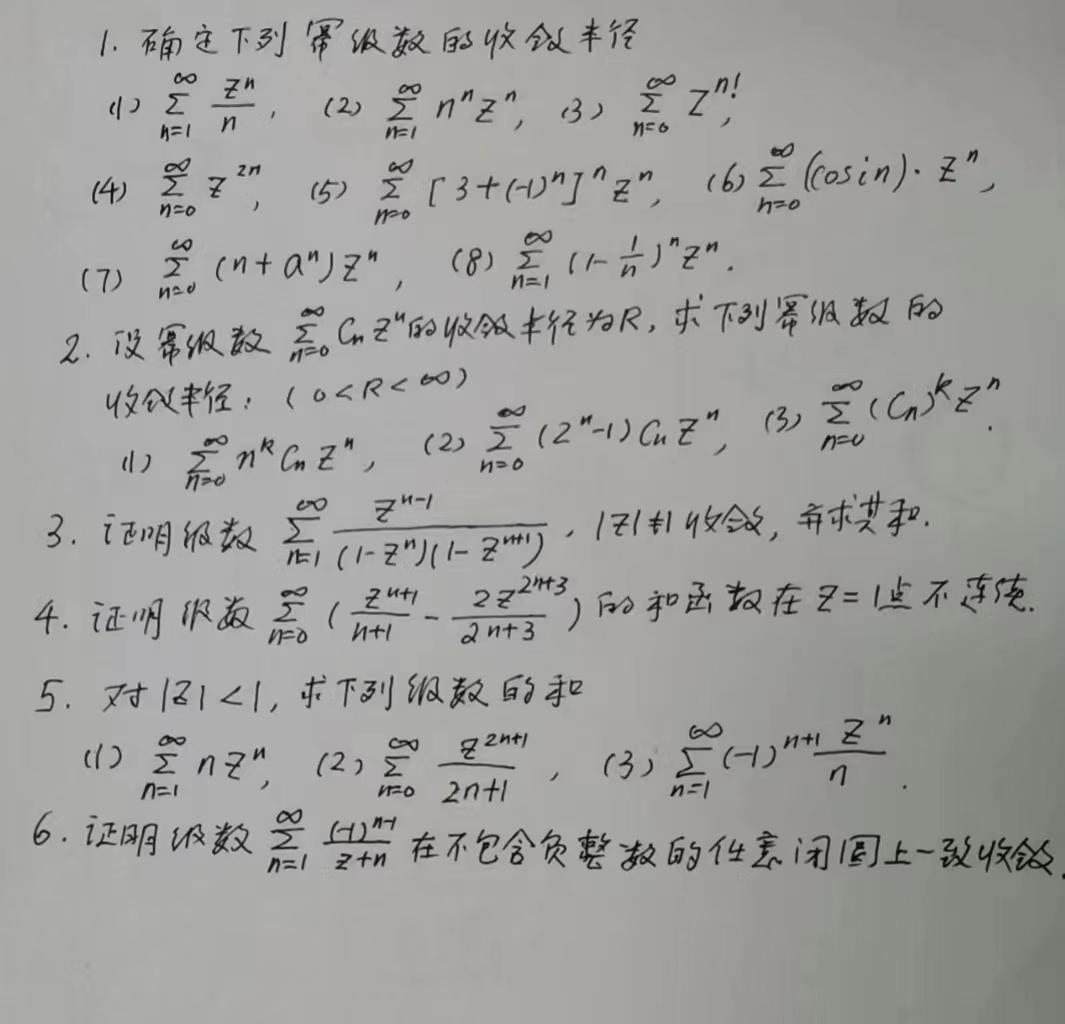 1. 确定下列幂级数的收敛半径
(1) \sum_{n=1}^{\infty} \frac{z^n}{n}, (2) \sum_{n=1}^{\infty} n^n z^n, (3) \sum_{n=0}^{\infty} z^{n!},
(4) \sum_{n=0}^{\infty} z^{2n}, (5) \sum_{n=0}^{\infty} [3+(-1)^n]^n z^n, (6) \sum_{n=0}^{\infty} (cosin)·z^n,
(7) \sum_{n=0}^{\infty} (n+a^n)z^n, (8) \sum_{n=1}^{\infty} (1-\frac{1}{n})^n z^n.
2. 设幂级数 \sum_{n=0}^{\infty} C_n z^n 的收敛半径为R, 求下列幂级数的
收敛半径: (0<R<∞)
(1) \sum_{n=0}^{\infty} n^k C_n z^n, (2) \sum_{n=0}^{\infty} (2^n-1) C_n z^n, (3) \sum_{n=0}^{\infty} (C_n)^k z^n.
3. 证明级数 \sum_{n=1}^{\infty} \frac{z^{n-1}}{(1-z^n)(1-z^{n+1})}, |z|≠1 收敛, 并求其和.
4. 证明级数 \sum_{n=0}^{\infty} (\frac{z^{n+1}}{n+1} - \frac{2z^{2n+3}}{2n+3}) 的和函数在 z=1点不连续.
5. 对|z|<1, 求下列级数的和
(1) \sum_{n=1}^{\infty} nz^n, (2) \sum_{n=0}^{\infty} \frac{z^{2n+1}}{2n+1}, (3) \sum_{n=1}^{\infty} (-1)^{n+1} \frac{z^n}{n}.
6. 证明级数 \sum_{n=1}^{\infty} \frac{(-1)^{n-1}}{z+n} 在不包含负整数的任意闭圆上一致收敛.